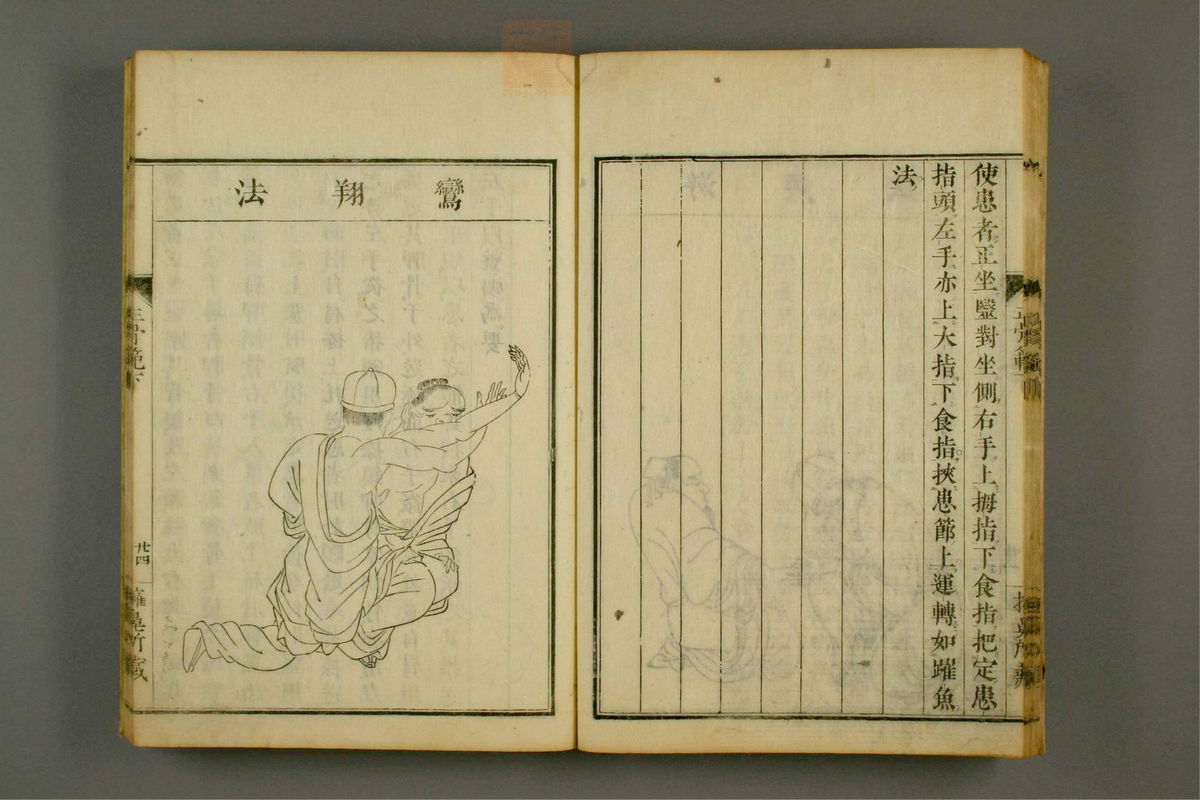 使患者正坐毉對坐側右手上拇指下食指把定患
指頭左手亦上大指下食指挾患節上運轉如躍魚
法
鸞翔法
廿四